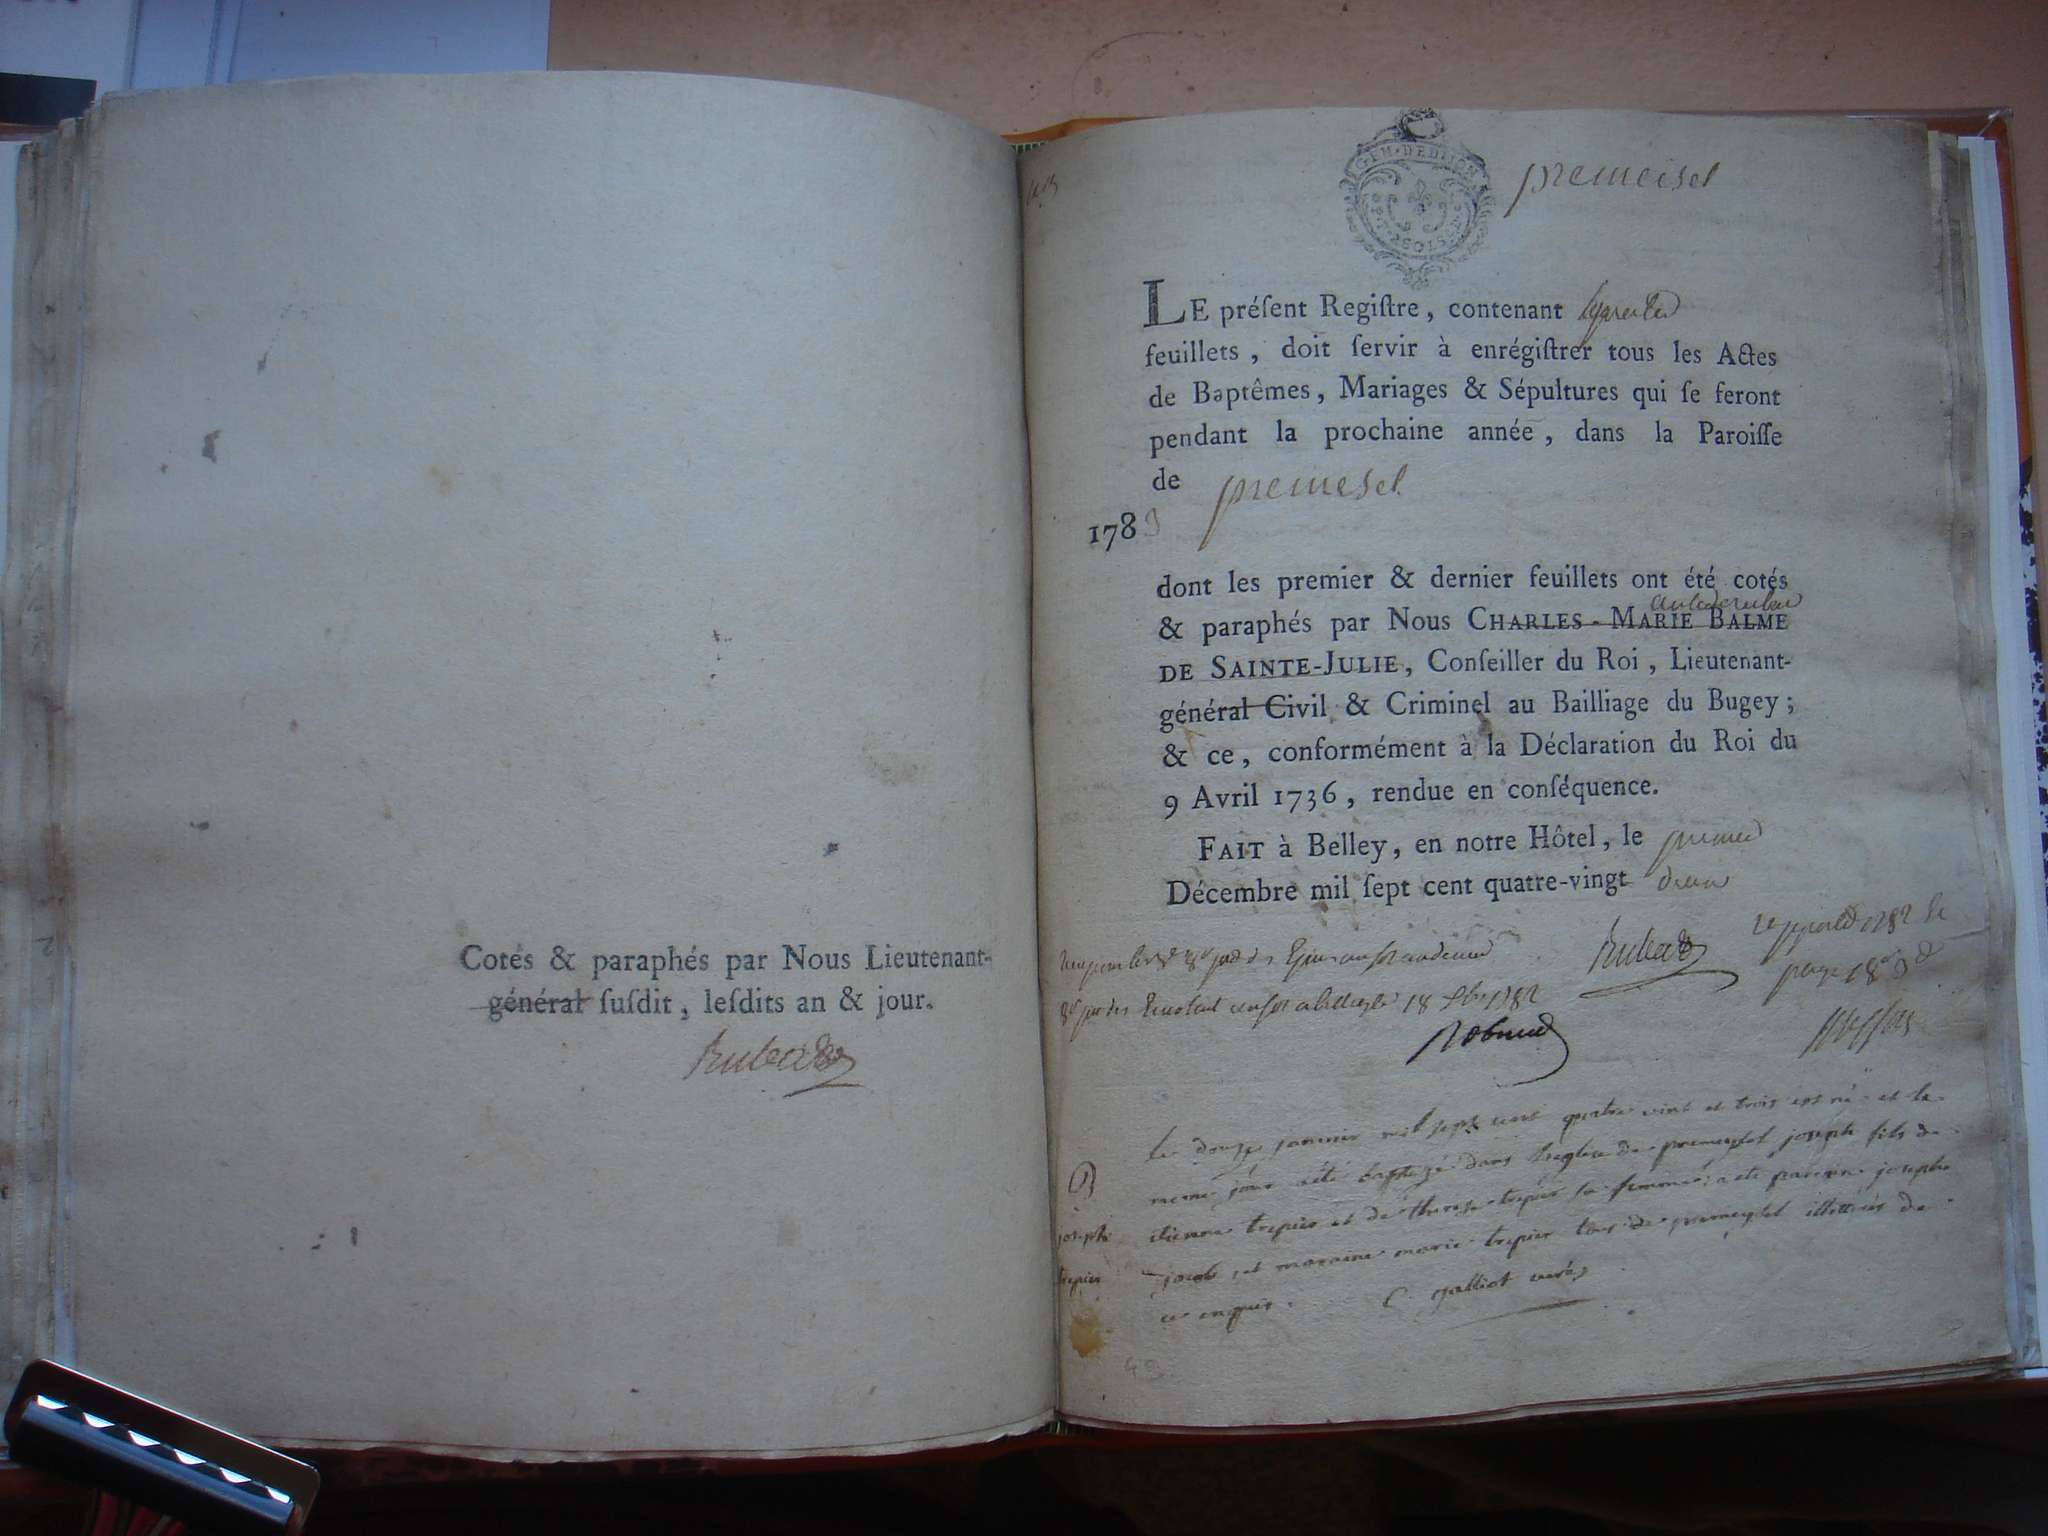 Cotés & paraphés par Nous Lieutenant-
général susdit, lesdits an & jour.
GEN. DE DIJON
premeisel
LE présent Registre, contenant
feuillets, doit servir à enrégistrer tous les Actes
de Baptêmes, Mariages & Sépultures qui se feront
pendant la prochaine année, dans la Paroisse
de premeisel
1783
dont les premier & dernier feuillets ont été cotés
& paraphés par Nous CHARLES-MARIE BALME
DE SAINTE-JULIE, Conseiller du Roi, Lieutenant-
général Civil & Criminel au Bailliage du Bugey;
& ce, conformément à la Déclaration du Roi du
9 Avril 1736, rendue en conséquence.
FAIT à Belley, en notre Hôtel, le premier
Décembre mil sept cent quatre-vingt deux
1782
18 1782
le douze janvier mil sept cent quatre vint et trois est né et le
meme jour a été baptizé dans l'eglise de premeyzel joseph fils de
etienne trepier et de therese trepier sa femme; a été parrain joseph
jacob, et maraine marie trepier tous de premeyzel illettrés de
ce enquis. C. galliot curé
B
joseph
trepier